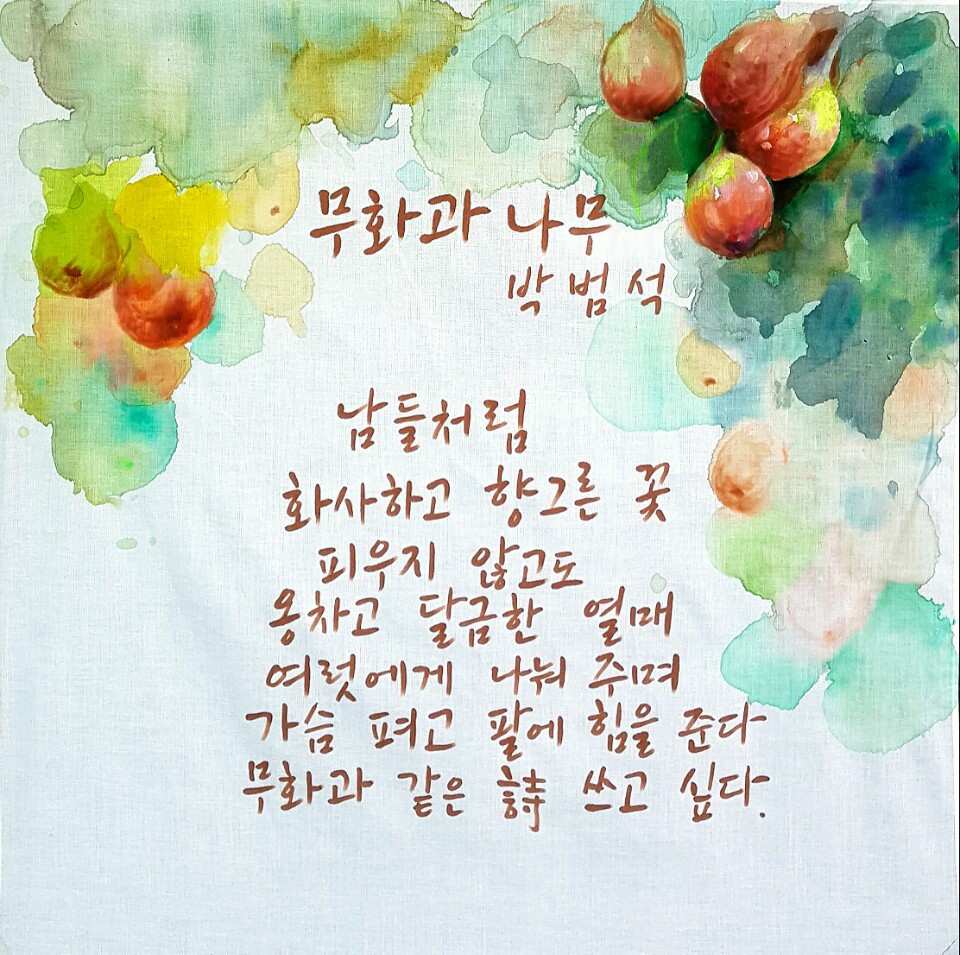 무화과 나무
박범석
남들처럼
화사하고 향그른 꽃
피우지 않고도
옹차고 달금한 열매
여럿에게 나눠 주며
가슴 펴고 팔에 힘을 준다
무화과 같은 詩 쓰고 싶다.